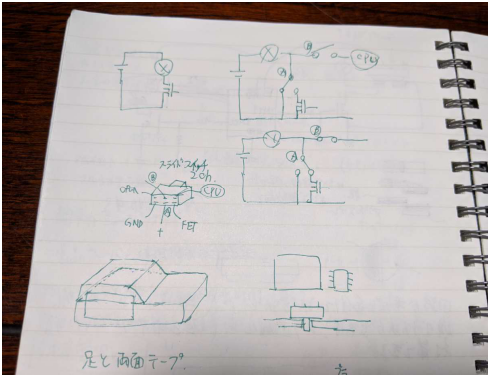 Ⓑ
CPU
Ⓐ
Ⓑ
Ⓐ
スライドスイッチ
2コの
Ⓑ
OPEN
CPU
GND
Ⓐ
FET
足と両面テープ